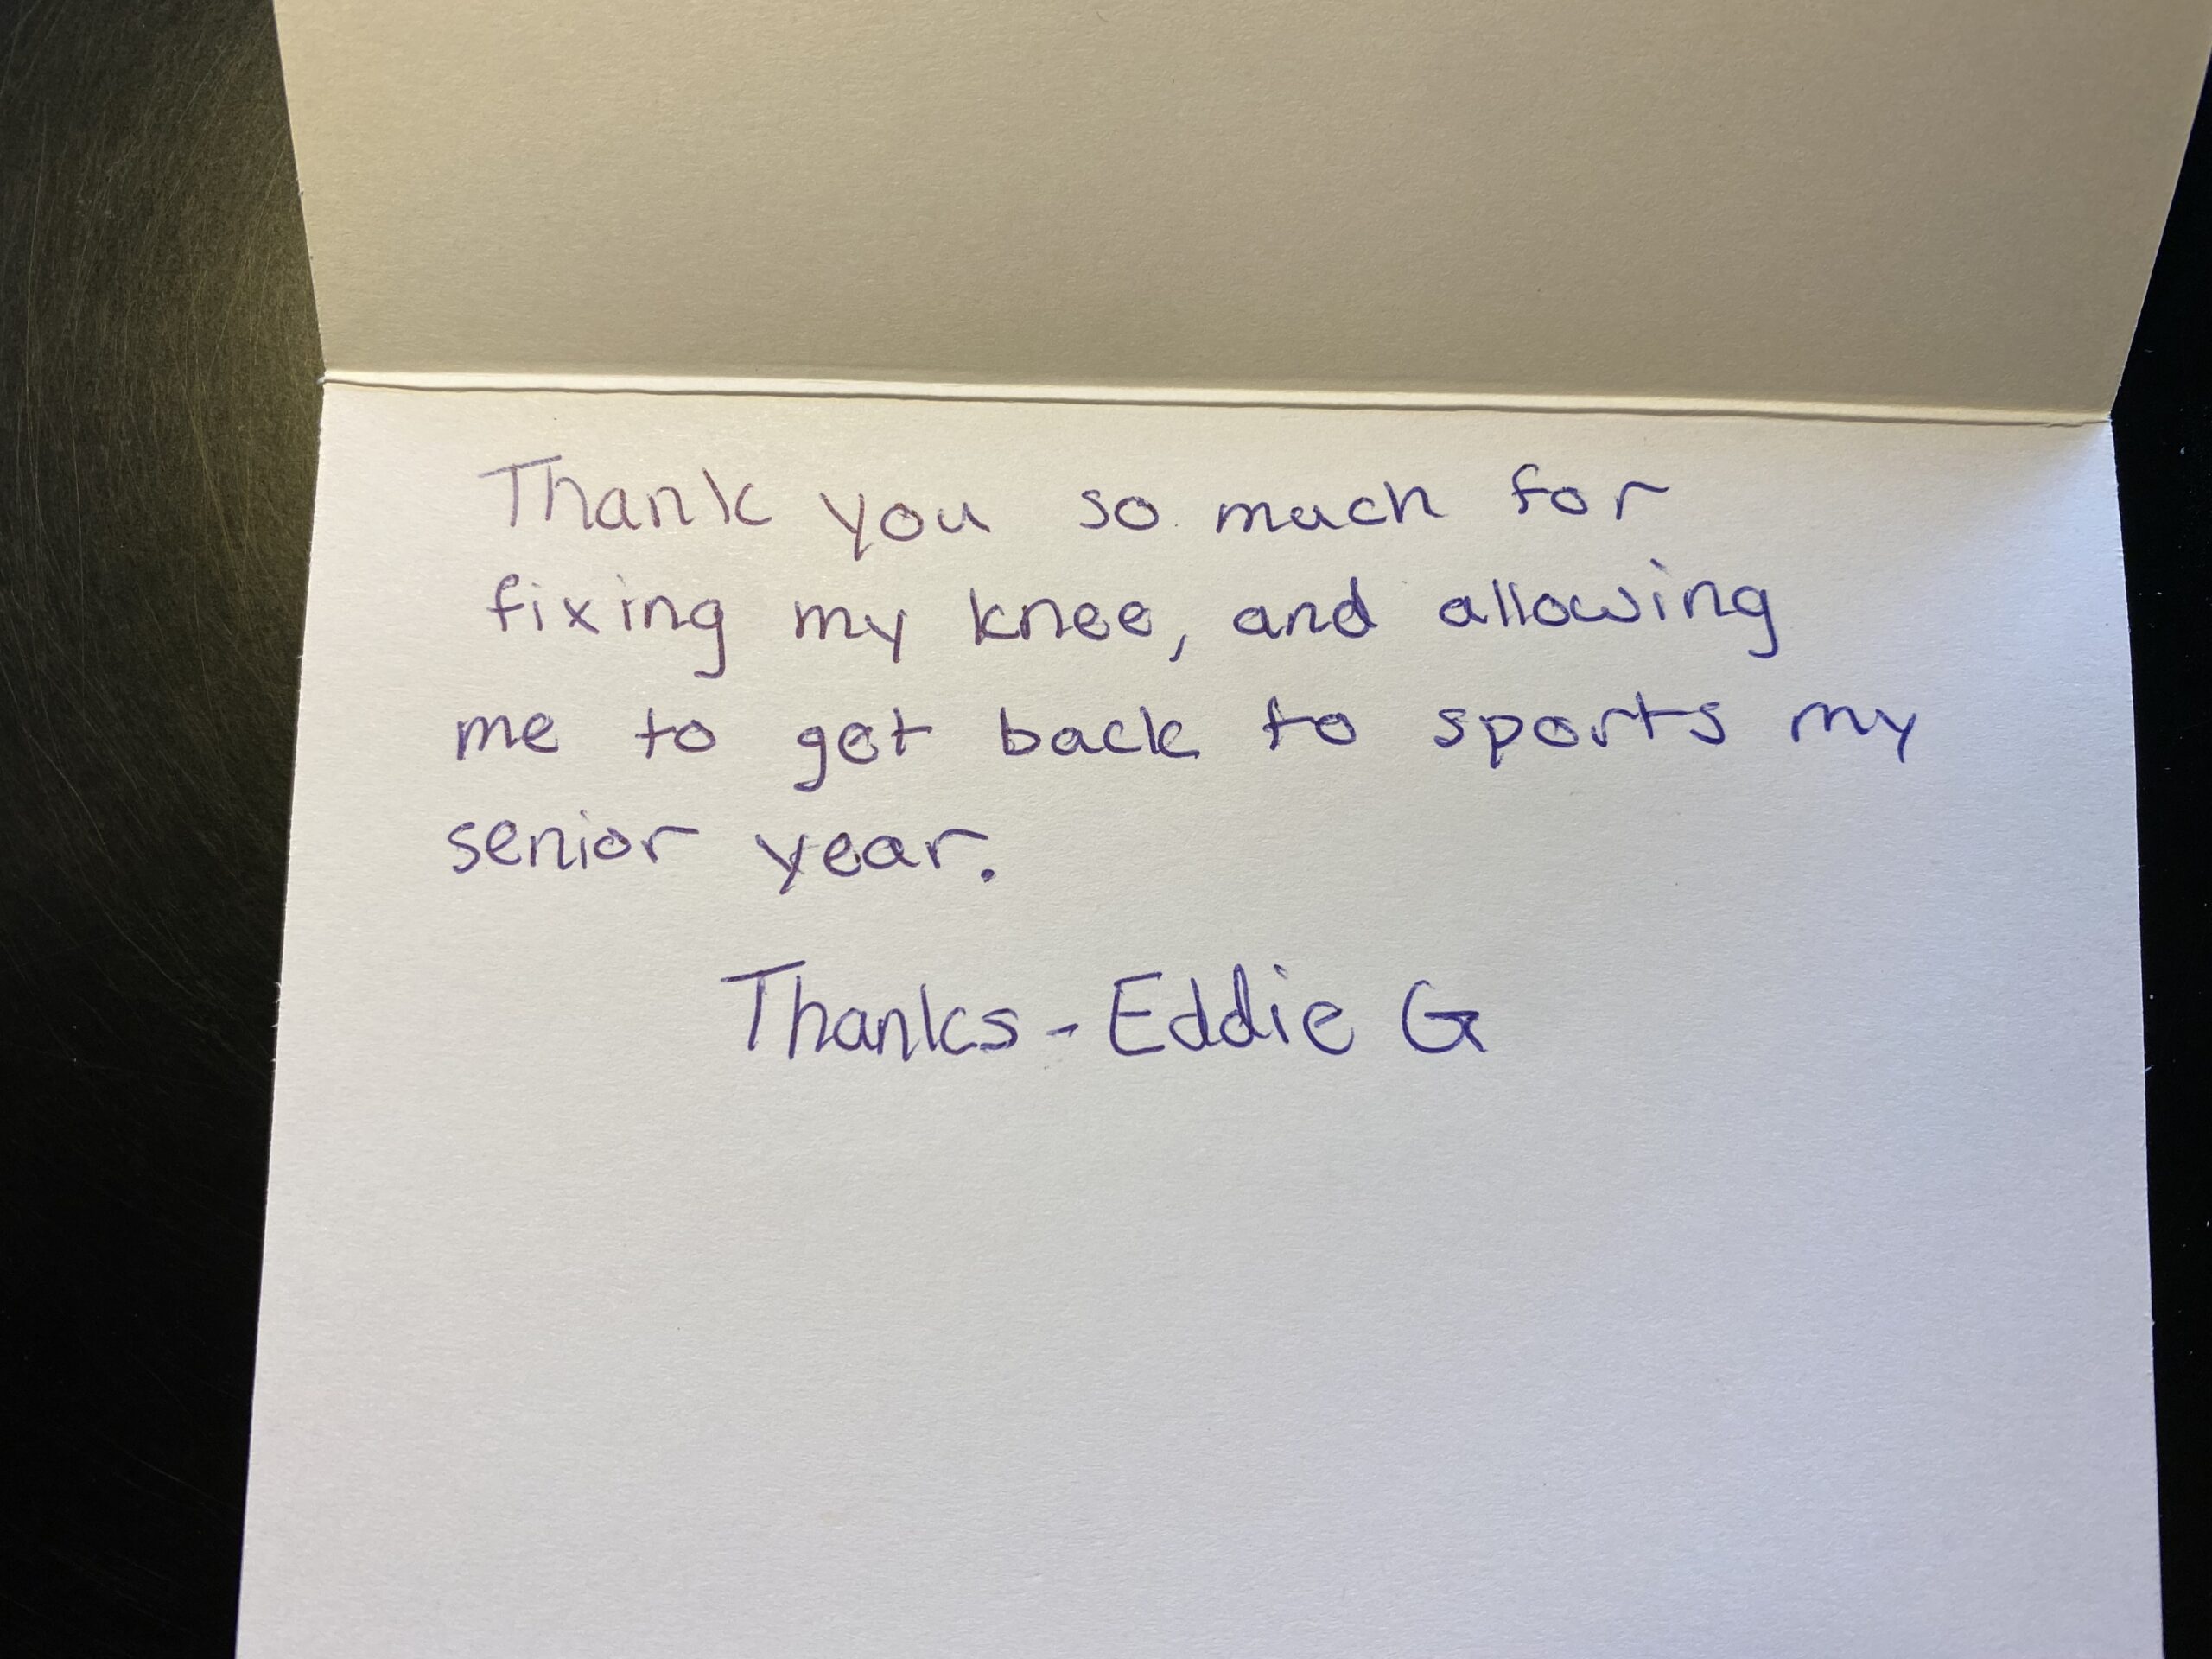 Thank you so much for
fixing my knee, and allowing
me to get back to sports my
senior year.
Thanks - Eddie G